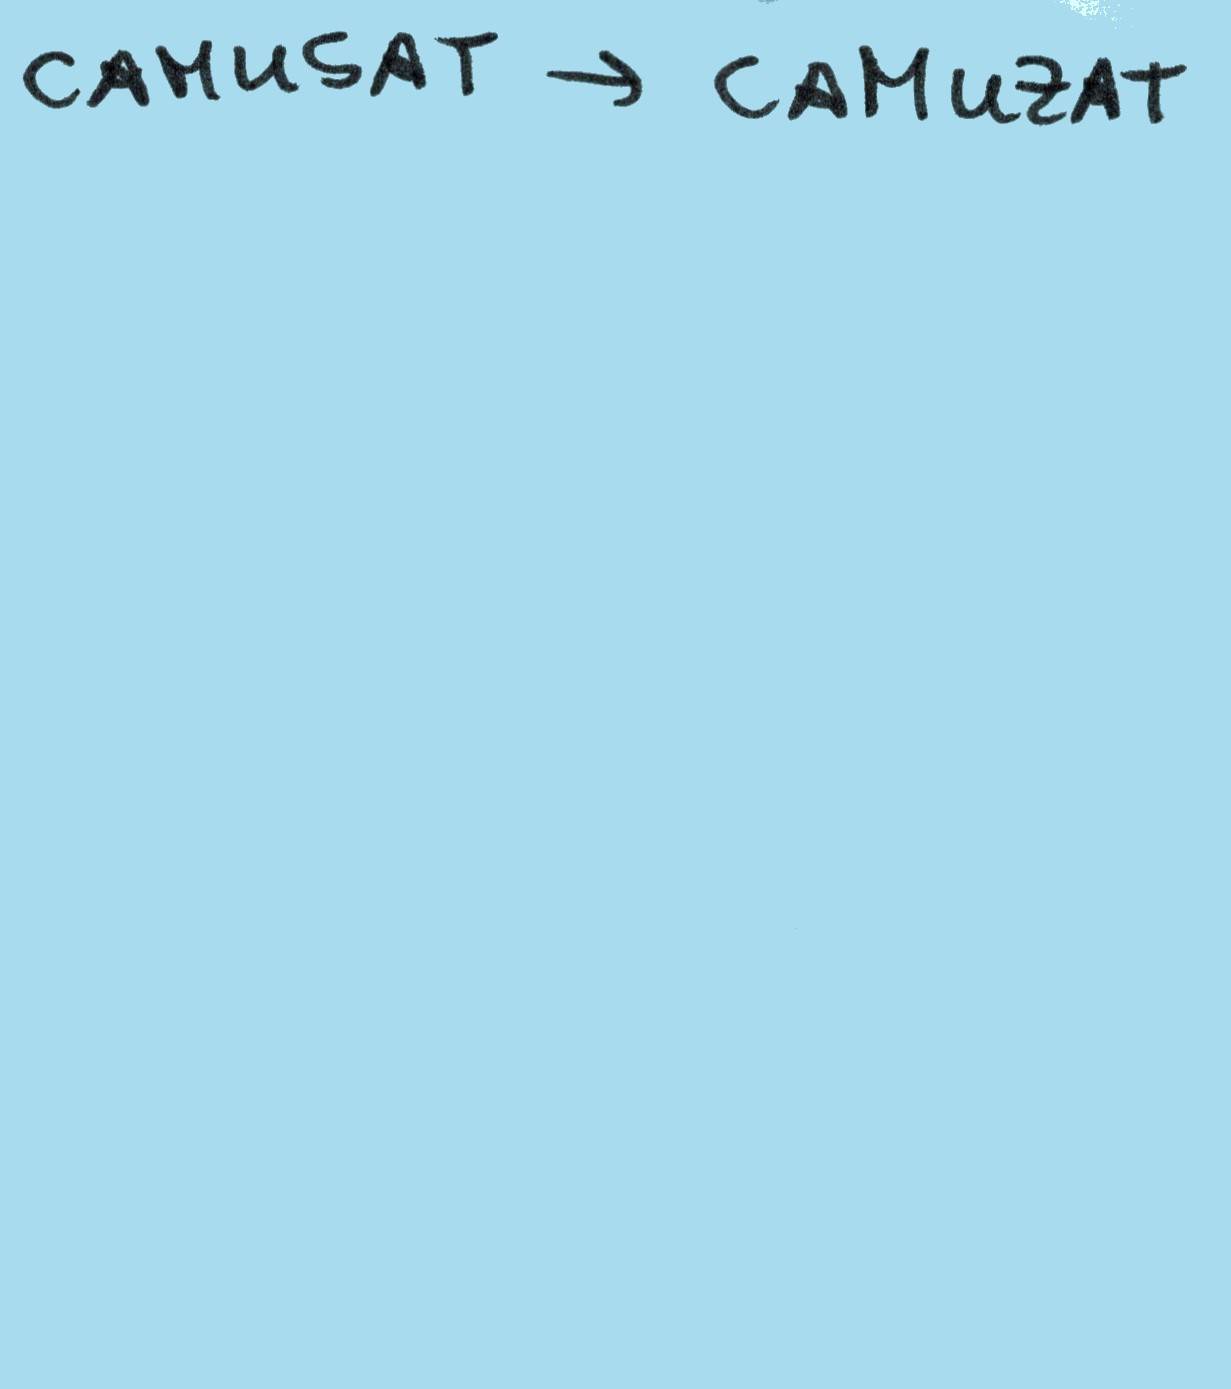 CAMUSAT → CAMUZAT